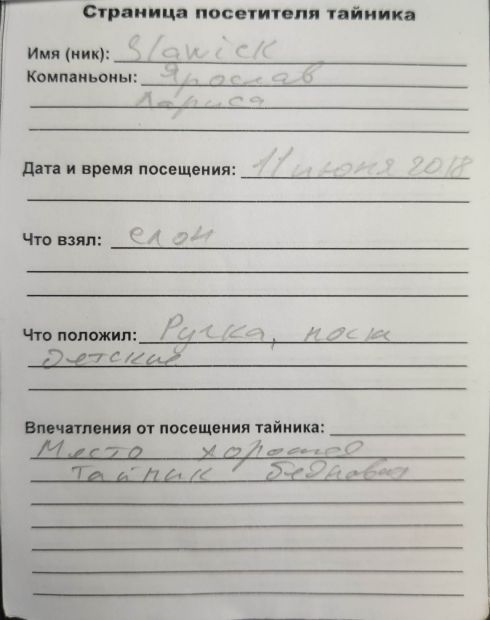 Страница посетителя тайника
Имя (ник): Slawick
Компаньоны: Ярослав
Лариса
Дата и время посещения: 11 июня 2018
Что взял: слон
Что положил: Ручка, носки
детские
Впечатления от посещения тайника:
Место хорошее
тайник бедноват